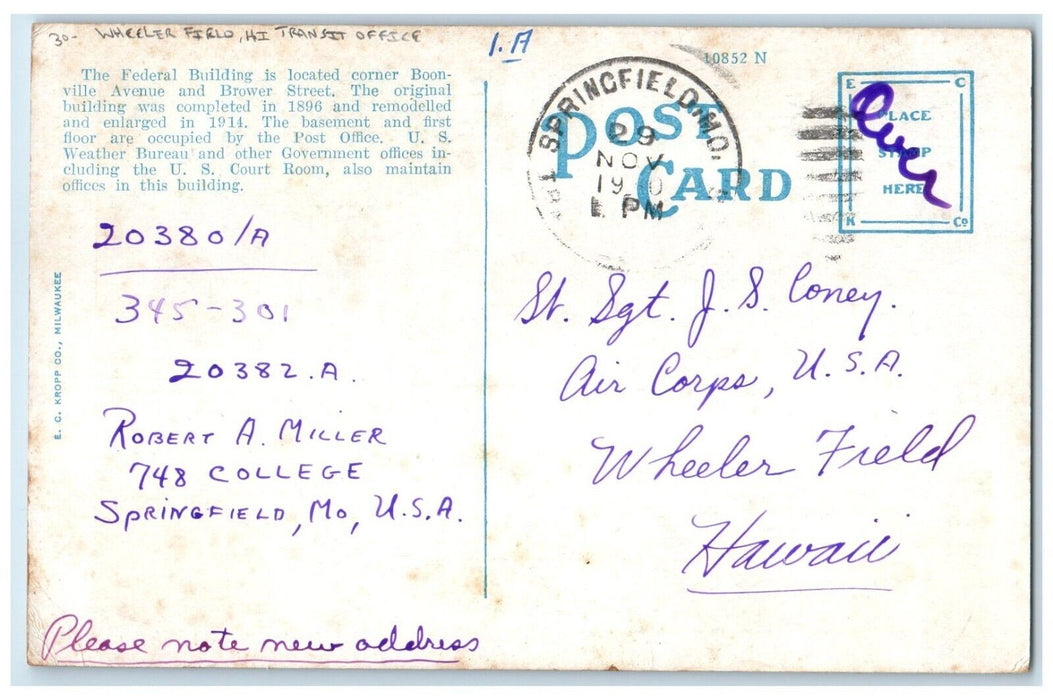 30- WHEELER FIELD, HI TRANSIT OFFICE
1.A
10852 N
The Federal Building is located corner Boon-
ville Avenue and Brower Street. The original
building was completed in 1896 and remodelled
and enlarged in 1914. The basement and first
floor are occupied by the Post Office. U. S.
Weather Bureau and other Government offices in-
cluding the U. S. Court Room, also maintain
offices in this building.
POST
CARD
SPRINGFIELD, MO.
29
NOV
PM
E C
PLACE
HERE
K Co
Over
20380/A
345-301
20382.A.
ROBERT A. MILLER
748 COLLEGE
SPRINGFIELD, MO, U.S.A.
Please note new address
E. C. KROPP CO., MILWAUKEE
St. Sgt. J. S. Coney.
Air Corps, U.S.A.
Wheeler Field
Hawaii